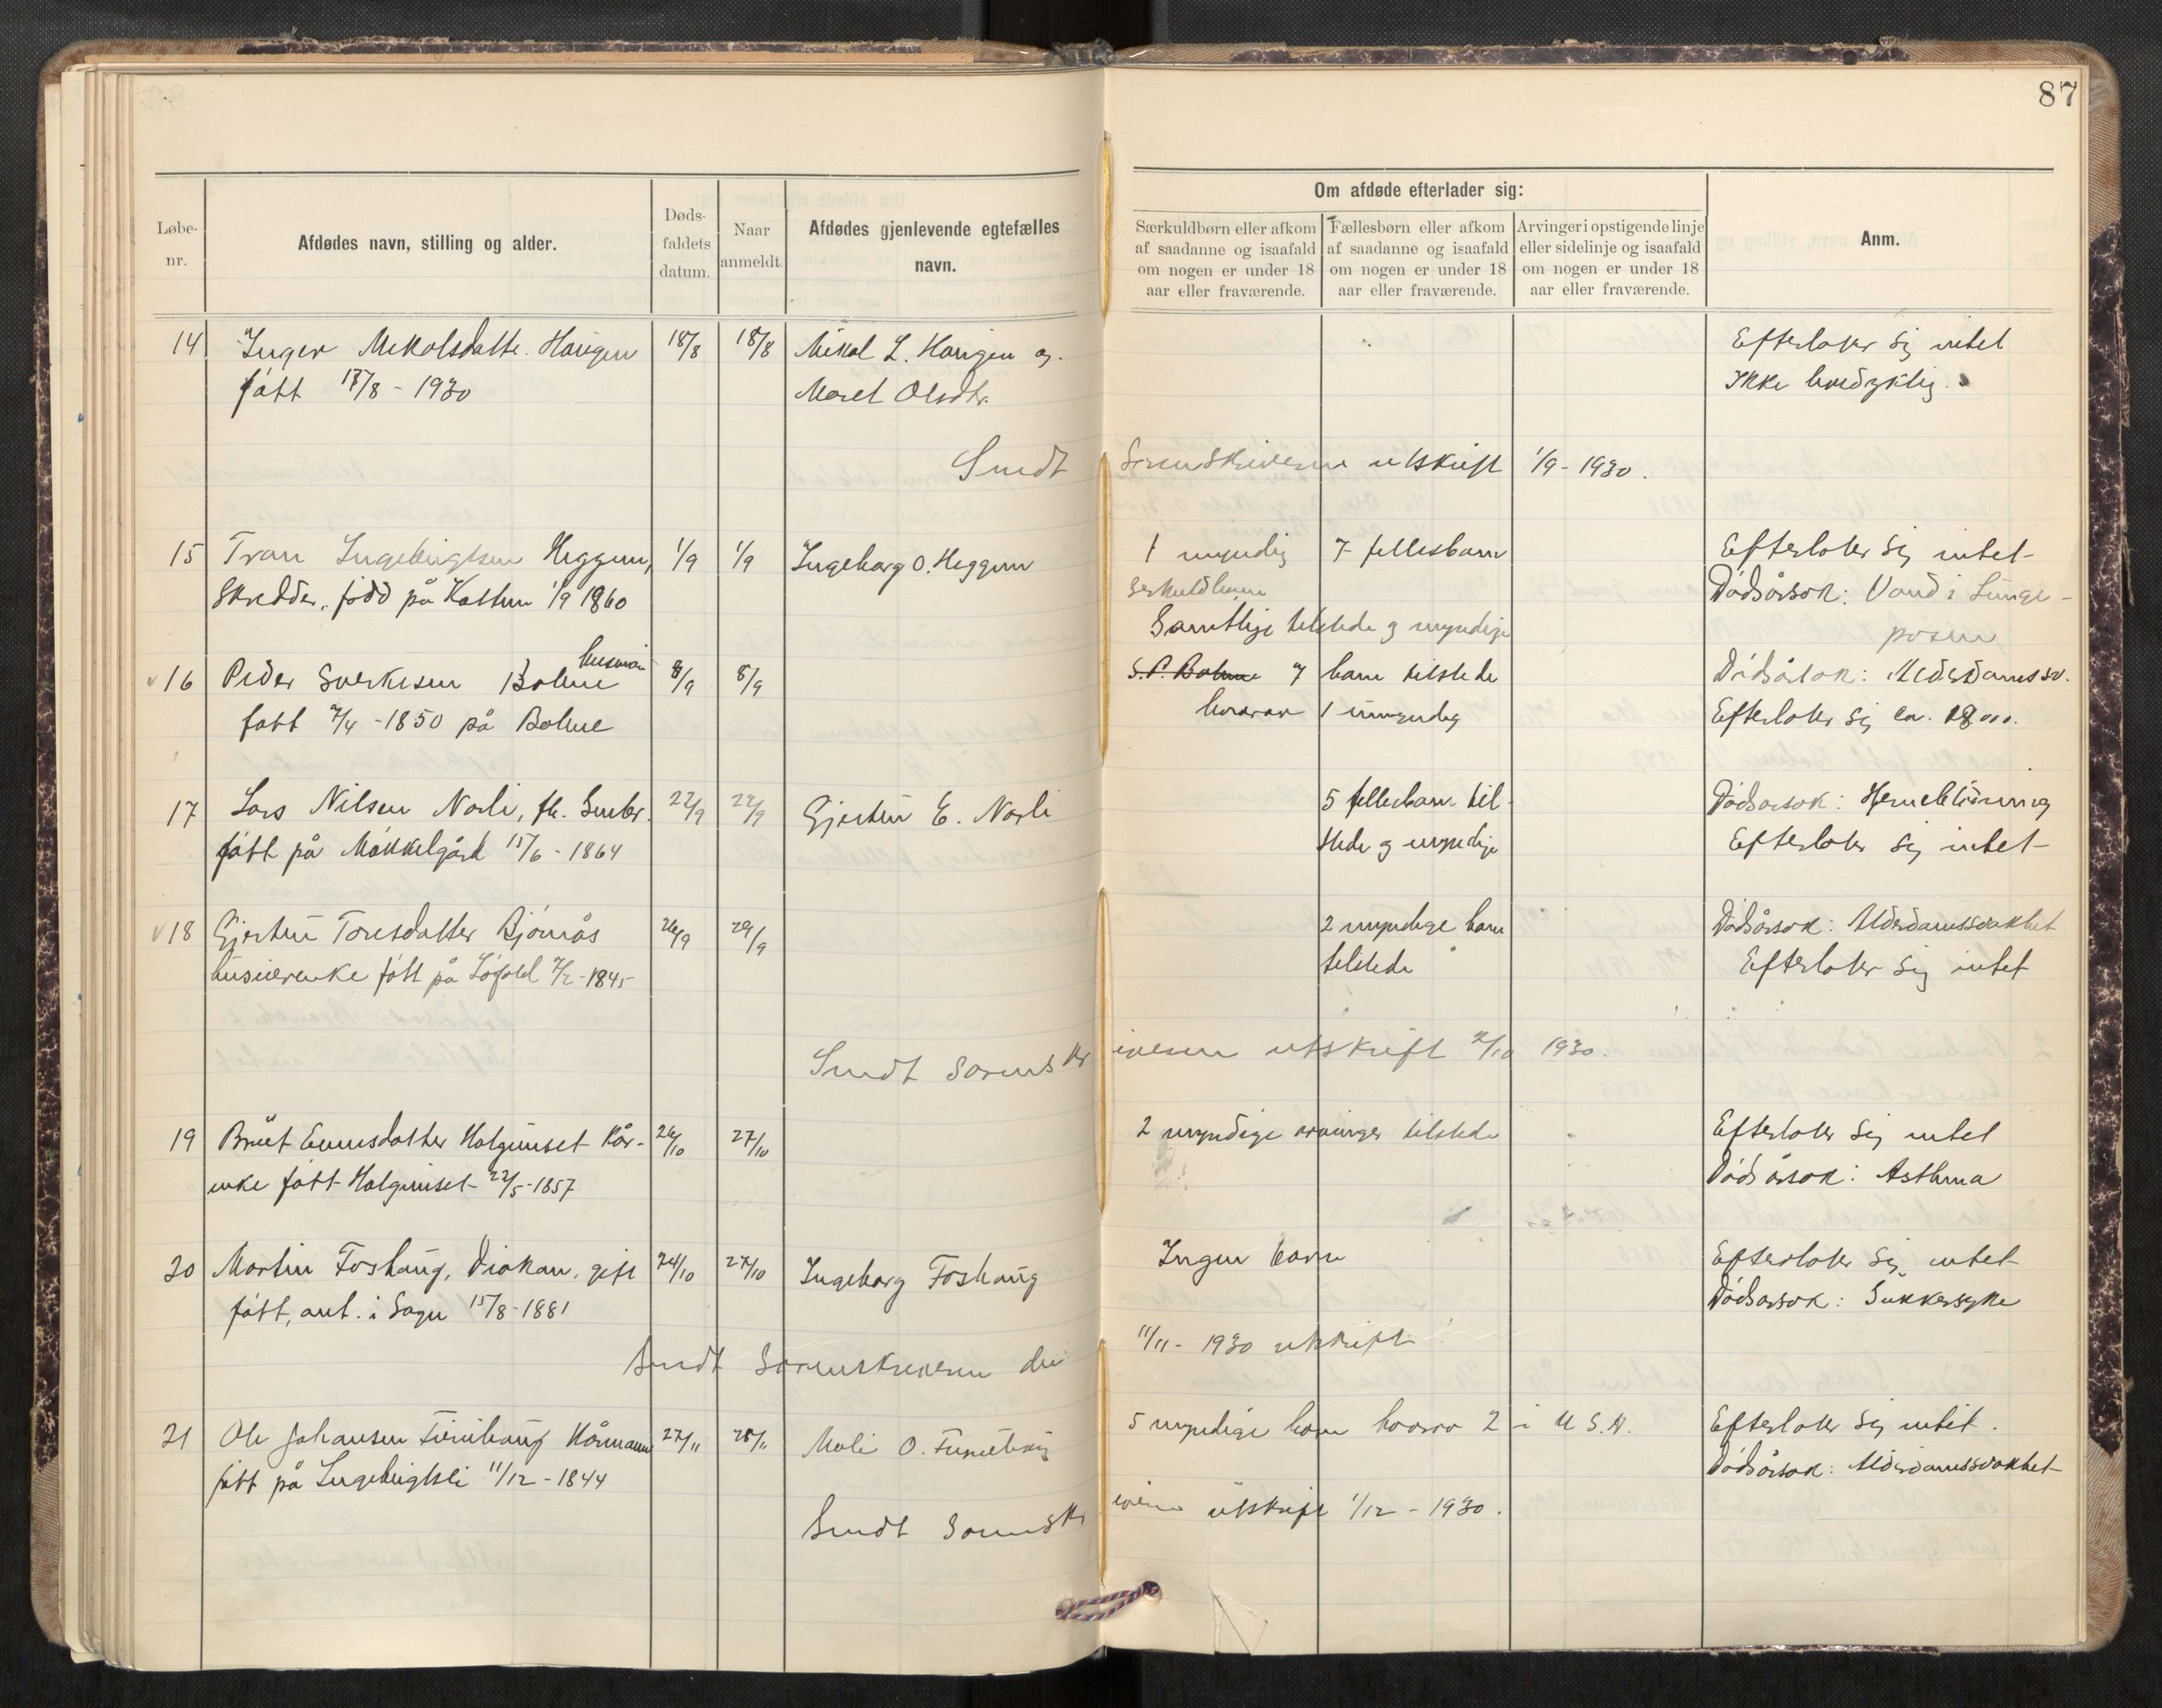 87
Løbe-nr.
Afdødes navn, stilling og alder.
Døds-faldets datum.
Naar anmeldt.
Afdødes gjenlevende egtefælles navn.
Om afdøde efterlader sig:
Særkuldbørn eller afkom af saadanne og isaafald om nogen er under 18 aar eller fraværende.
Fællesbørn eller afkom af saadanne og isaafald om nogen er under 18 aar eller fraværende.
Arvinger i opstigende linje eller sidelinje og isaafald om nogen er under 18 aar eller fraværende.
Anm.
14 Inger Mekolsdatte. Haugen 18/8 18/8 Mikal L. Haugen og. Efterlater sig intet
født 17/8 - 1930 Maret Olsdtr. Ikke
Sendt Sorenskriveren utskrift 1/9 - 1930.
15 Tron Ingebrigtsen Heggem, 1/9 1/9 Ingeborg O. Heggem 1 myndig 7 fellesbarn Efterlater sig intet
Skredder, født på 1/9 1860 serkuldbarn Dødsårsak: Vand i Lunge-
Samtlige tilstede og myndige posen
16 Peder Sverkesen Bolme husman 8/9 8/9 S. P. Bolme 7 barn tilstede Dødsårsak: Alderdomssv.
født 7/4 - 1850 på Bolme hvorav 1 umyndig Efterlater sig ca.
17 Lars Nilsen Norli, fh. 22/9 22/9 Gjertin E. Norli 5 fellesbarn til- Dødsårsak:
født på Møkkelgård 15/6 - 1864 stede og myndige Efterlater sig intet
18 Gjertin Toresdatter Bjørnås 26/9 29/9 2 myndige barn Dødsårsak: Alderdomssvakhet
født på 7/2 - 1845 tilstede Efterlater sig intet
Sendt Sorenskriveren utskrift 2/10 1930.
19 Brüt Evensdatter Holginset Kår- 26/10 27/10 2 myndige arvinger tilstede Efterlater sig intet
enke født Holginset 22/5 - 1857 Dødsårsak: Asthma
20 Martin Foshaug, Diakon, gift 24/10 27/10 Ingeborg Foshaug Ingen barn Efterlater sig intet
født, ant. i Sogn 15/8 - 1881 Dødsårsak: Sukkersyke
Sendt Sorenskriveren den 11/11 - 1930 utskrift
21 Ole Johansen Kårmann 27/11 28/11 Mali O. 5 myndige barn hvorav 2 i U.S.A. Efterlater sig intet.
født på Ingebrigtsli 11/12 - 1844 Dødsårsak: Alderdomssvakhet
Sendt Sorenskriveren utskrift 1/12 - 1930.